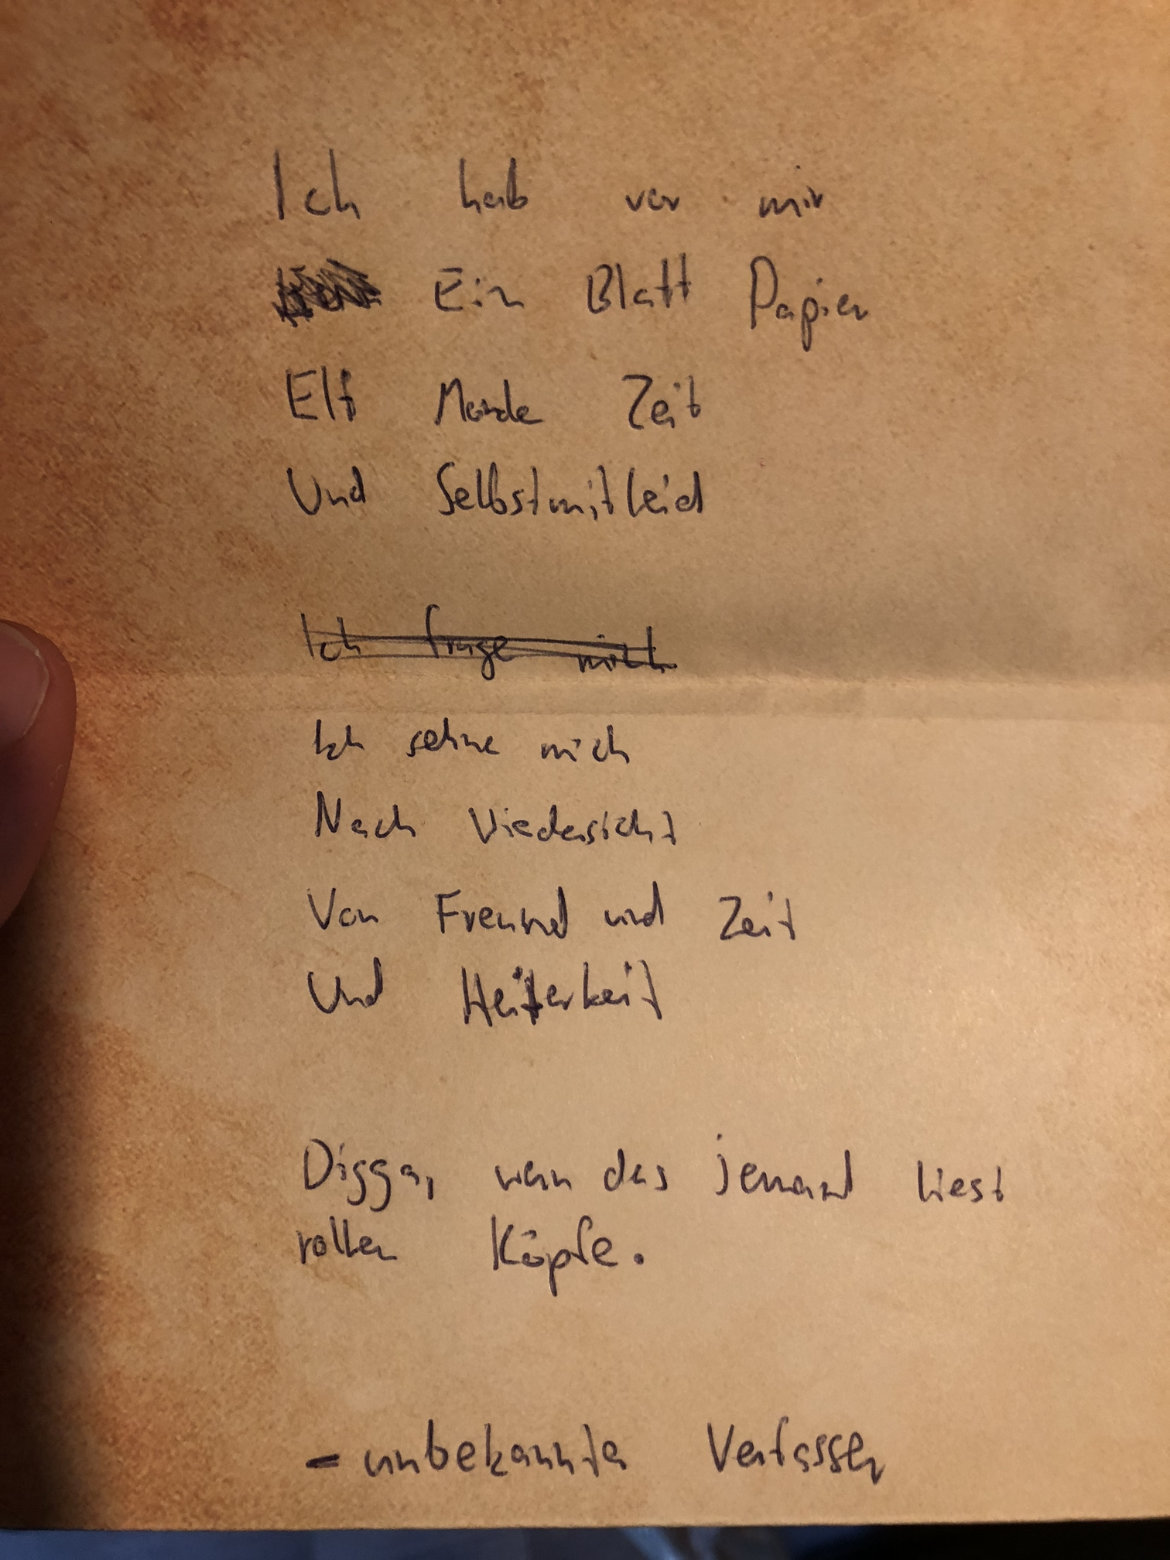 Ich hab vor mir
Ein Blatt Papier
Elf Monde Zeit
Und Selbstmitleid
Ich frage mich
Ich sehne mich
Nach Wiedersicht
Von Freund und Zeit
Und Heiterkeit
Digga, wenn das jemand liest
rollen Köpfe.
- unbekannter Verfasser